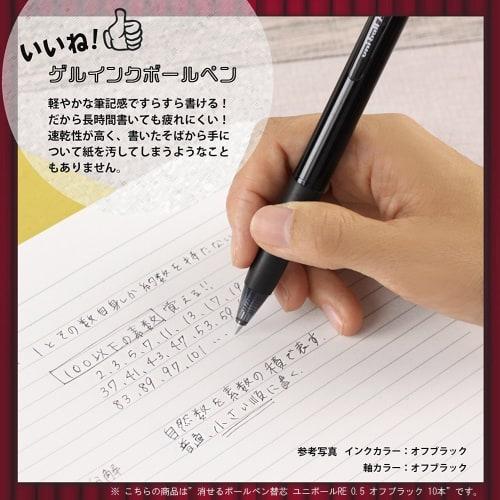 いいね!
ゲルインクボールペン
軽やかな筆記感ですらすら書ける！
だから長時間書いても疲れにくい！
速乾性が高く、書いたそばから手に
ついて紙を汚してしまうようなこと
もありません。
1とその数自身しか約数を持たない
100以下の素数 覚える!!
2, 3, 5, 7, 11, 13, 17, 19
37, 41, 43, 47, 53, 59
83, 89, 97, 101 ...
自然数を素数の積で表す.
普通、小さい順に書く.
参考写真 インクカラー：オフブラック
軸カラー：オフブラック
※ こちらの商品は”消せるボールペン替芯 ユニボールRE 0.5 オフブラック 10本”です。